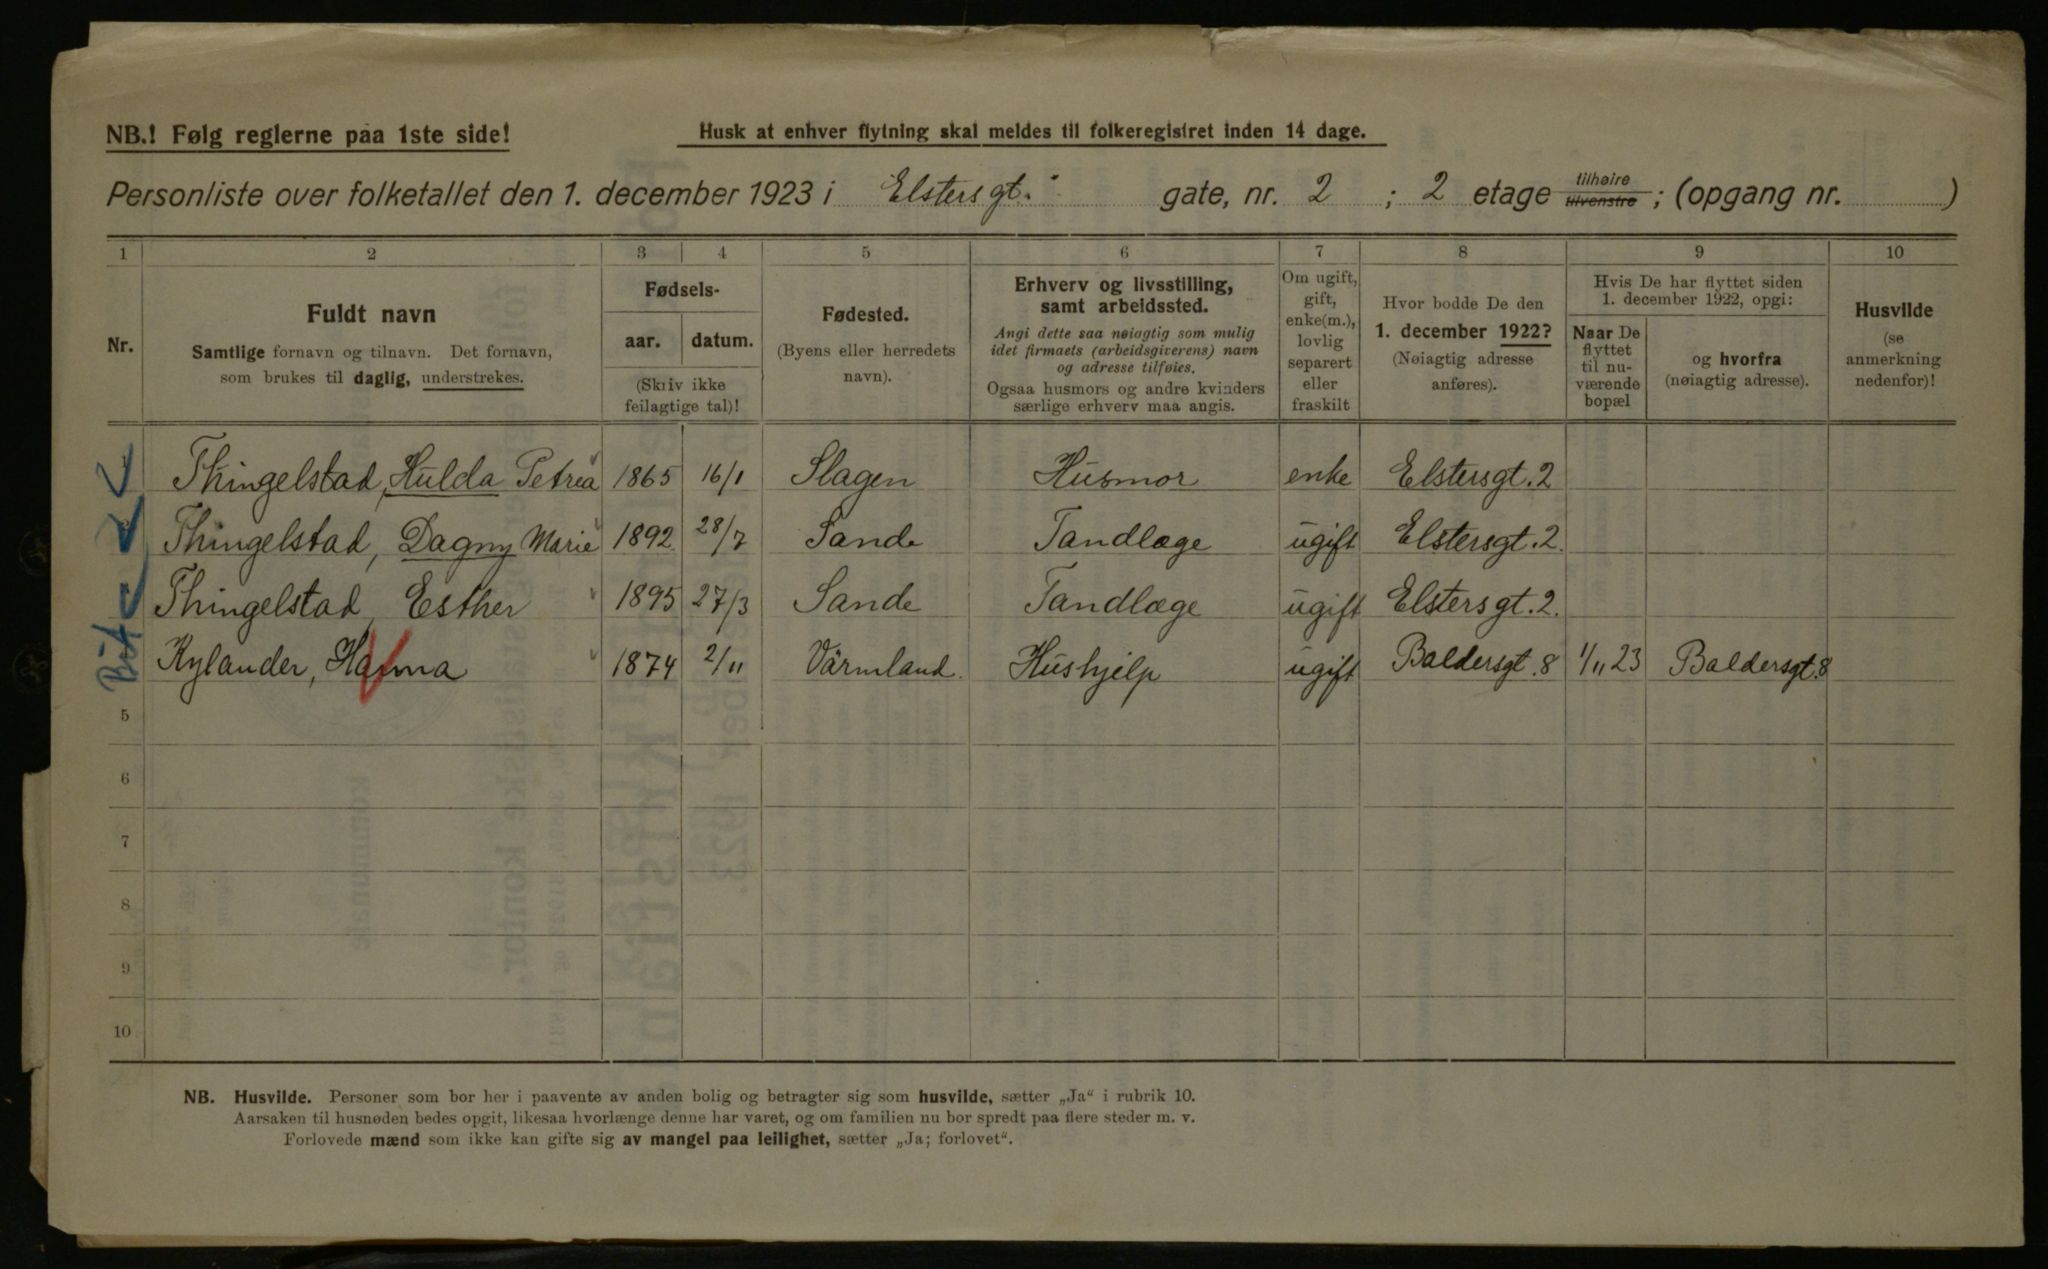 NB.! Følg reglerne paa 1ste side!
Husk at enhver flytning skal meldes til folkeregistret inden 14 dage.
Personliste over folketallet den 1. december 1923 i Elstersgt. gate, nr. 2 ; 2 etage tilhøire tilvenstre ; (opgang nr. )
1 2 3 4 5 6 7 8 9 10
Nr.
Fuldt navn
Samtlige fornavn og tilnavn. Det fornavn,
som brukes til daglig, understrekes.
Fødsels-
aar. datum.
(Skriv ikke
feilagtige tal)!
Fødested.
(Byens eller herredets
navn).
Erhverv og livsstilling,
samt arbeidssted.
Angi dette saa nøiagtig som mulig
idet firmaets (arbeidsgiverens) navn
og adresse tilføies.
Ogsaa husmors og andre kvinders
særlige erhverv maa angis.
Om ugift,
gift,
enke(m.),
lovlig
separert
eller
fraskilt
Hvor bodde De den
1. december 1922?
(Nøiagtig adresse
anføres).
Hvis De har flyttet siden
1. december 1922, opgi:
Naar De
flyttet
til nu-
værende
bopæl
og hvorfra
(nøiagtig adresse).
Husvilde
(se
anmerkning
nedenfor)!
Thingelstad, Hulda Petrea 1865 16/1 Slagen Husmor enke Elstersgt. 2
Thingelstad, Dagny Marie 1892 28/7 Sande Tandlæge ugift Elstersgt. 2.
Thingelstad, Esther 1895 27/3 Sande Tandlæge ugift Elstersgt. 2.
Kylander, Hanna 1874 2/11 Värmland. Hushjelp ugift Baldersgt. 8 1/11 23 Baldersgt. 8
5
6
7
8
9
10
NB. Husvilde. Personer som bor her i paavente av anden bolig og betragter sig som husvilde, sætter „Ja“ i rubrik 10.
Aarsaken til husnøden bedes opgit, likesaa hvorlænge denne har varet, og om familien nu bor spredt paa flere steder m. v.
Forlovede mænd som ikke kan gifte sig av mangel paa leilighet, sætter „Ja; forlovet“.